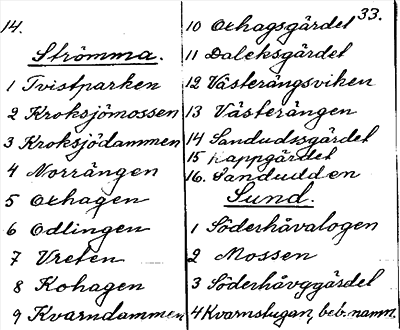 14.
Strömma.
1 Tvistparken
2 Kroksjömossen
3 Kroksjödammen
4 Norrängen
5 Oxhagen
6 Odlingen
7 Vreten
8 Kohagen
9 Kvarndammen
33.
10 Oxhagsgärdet
11 Daleksgärdet
12 Västerängsviken
13 Västerängen
14 Sanduddsgärdet
15 Kappgärdet
16. Sandudden
Sund.
1 Söderhåvalogen
2 Mossen
3 Söderhåvggärdet
4 Kvarnstugan, beb. namn.